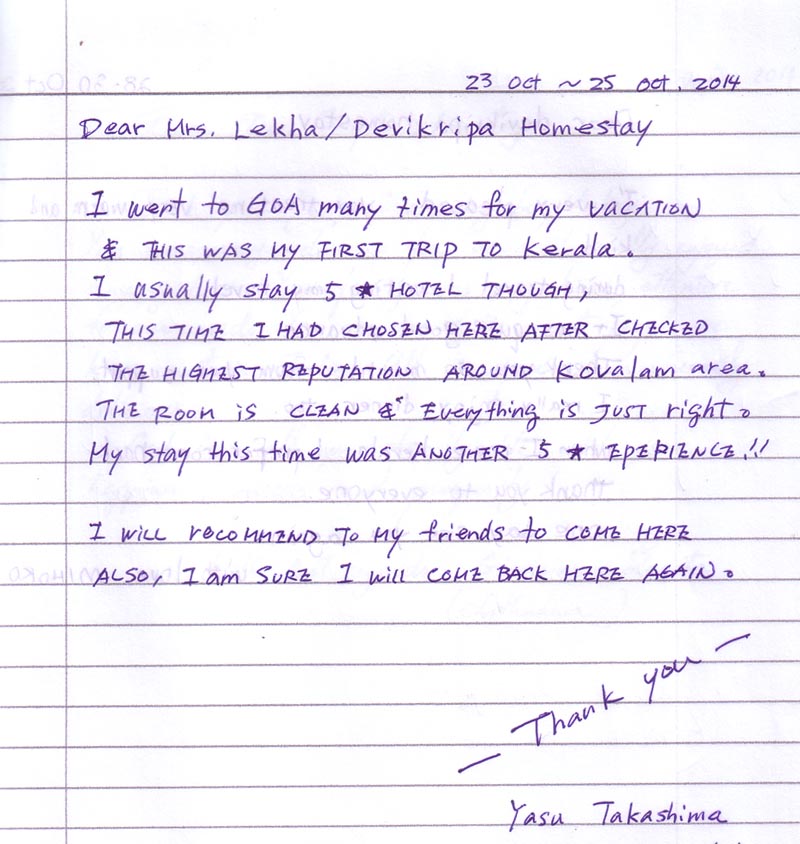 23 Oct ~ 25 Oct, 2014
Dear Mrs. Lekha / Devikripa Homestay
I went to GOA many times for my VACATION
& THIS WAS MY FIRST TRIP TO Kerala.
I usually stay 5 ★ HOTEL THOUGH,
THIS TIME I HAD CHOSEN HERE AFTER CHECKED
THE HIGHEST REPUTATION AROUND Kovalam area.
THE ROOM iS CLEAN & EVErything is JUST right.
My stay this time was ANOTHER 5 ★ EPERIENCE.!!
I WILL recOMMEND TO MY friends to COME HERE
ALSO, I am SURE I will COME BACK HERE AGAIN.
— Thank you —
Yasu Takashima